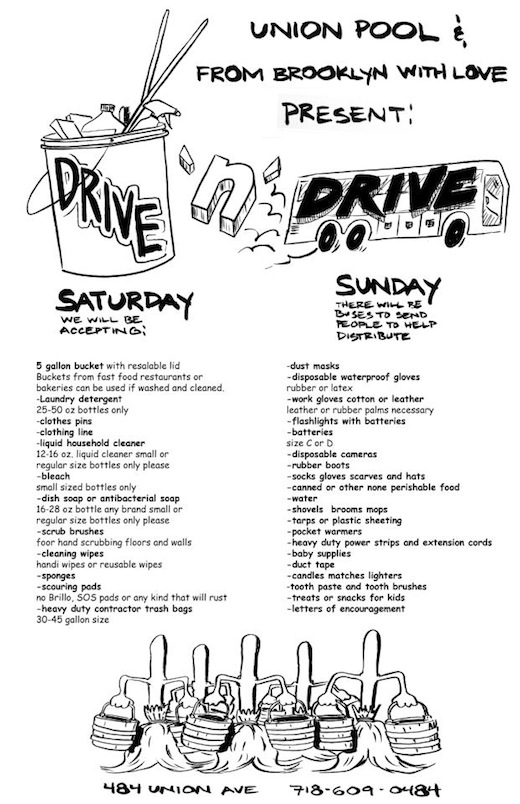 UNION POOL &
FROM BROOKLYN WITH LOVE
PRESENT:
DRIVE n DRIVE
SATURDAY
WE WILL BE
ACCEPTING:
SUNDAY
THERE WILL BE
BUSES TO SEND
PEOPLE TO HELP
DISTRIBUTE
5 gallon bucket with resalable lid
Buckets from fast food restaurants or
bakeries can be used if washed and cleaned.
-Laundry detergent
25-50 oz bottles only
-clothes pins
-clothing line
-liquid household cleaner
12-16 oz. liquid cleaner small or
regular size bottles only please
-bleach
small sized bottles only
-dish soap or antibacterial soap
16-28 oz bottle any brand small or
regular size bottles only please
-scrub brushes
foor hand scrubbing floors and walls
-cleaning wipes
handi wipes or reusable wipes
-sponges
-scouring pads
no Brillo, SOS pads or any kind that will rust
-heavy duty contractor trash bags
30-45 gallon size
-dust masks
-disposable waterproof gloves
rubber or latex
-work gloves cotton or leather
leather or rubber palms necessary
-flashlights with batteries
-batteries
size C or D
-disposable cameras
-rubber boots
-socks gloves scarves and hats
-canned or other none perishable food
-water
-shovels brooms mops
-tarps or plastic sheeting
-pocket warmers
-heavy duty power strips and extension cords
-baby supplies
-duct tape
-candles matches lighters
-tooth paste and tooth brushes
-treats or snacks for kids
-letters of encouragement
484 UNION AVE 718-609-0484